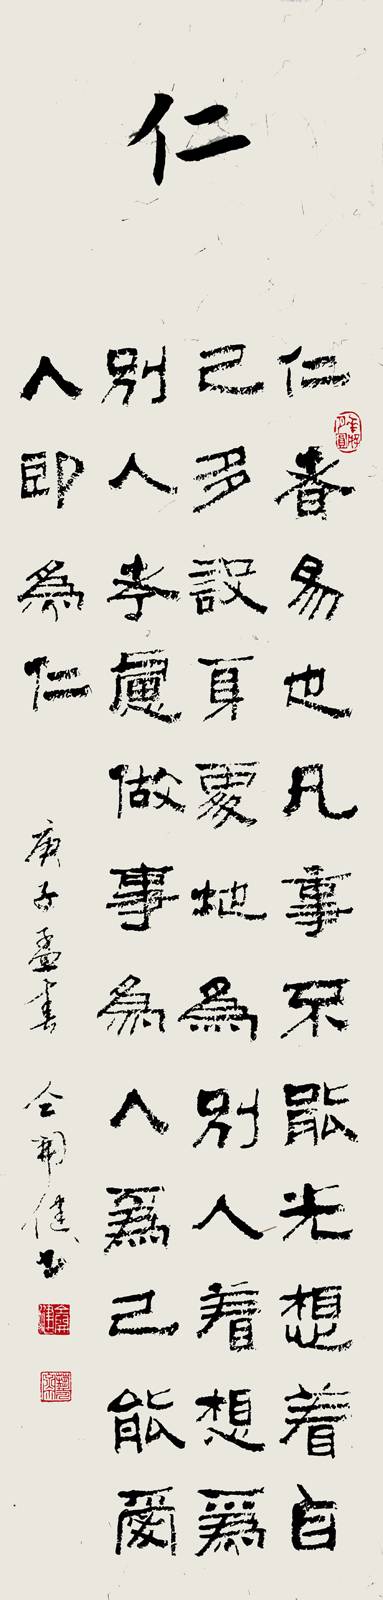 仁
仁者易也凡事不能光想着自
己多設身處地為别人着想爲
别人考慮做事為人爲己能愛
人即為仁
庚子孟春 仝開健书